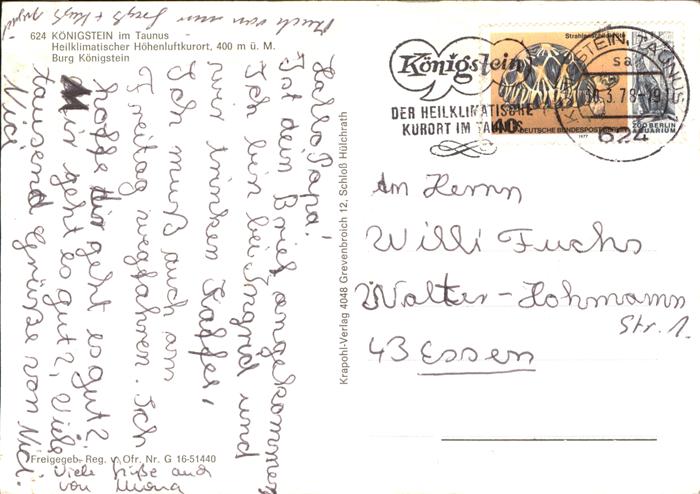 624 KÖNIGSTEIN im Taunus
Heilklimatischer Höhenluftkurort, 400 m ü. M.
Burg Königstein
Auch von mir
Hallo Papa!
Ist dein Brief angekommen
Ich bin bei Ingrid und
wir trinken Kaffee,
Ich muß auch am
Freitag wegfahren. Ich
hoffe dir geht es gut?
Mir geht es gut?, Viele
tausend Grüße von Nici.
Nici
Viele Grüße auch
von
Freigegeb. Reg. v. Ofr. Nr. G 16-51440
Krapohl-Verlag 4048 Grevenbroich 12, Schloß Hülchrath
Königstein
DER HEILKLIMATISCHE
KURORT IM TAUNUS
KÖNIGSTEIN, TAUNUS 1
sa
.3.78-19
624
40
DEUTSCHE BUNDESPOST BERLIN
1977
ZOO BERLIN
AQUARIUM
An Herrn
Willi Fuchs
Walter-Hohmann
Str. 1.
43 Essen